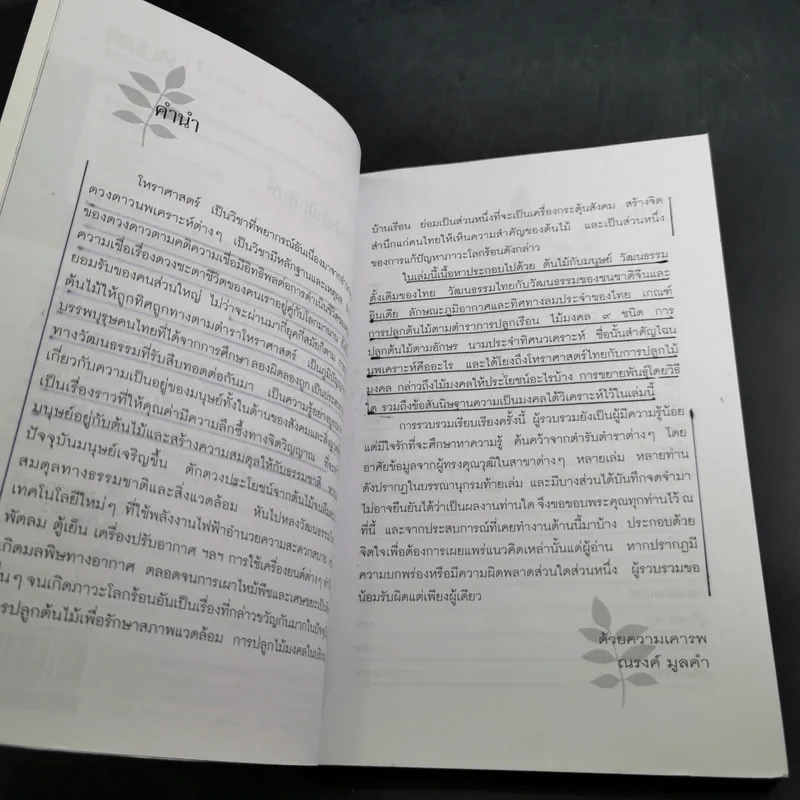 คำนำ
โหราศาสตร์ เป็นวิชาที่พยากรณ์อันเนื่องมาจาก
ดวงดาวนพเคราะห์ต่างๆ เป็นวิชามีหลักฐานและเหตุผล
ของดวงดาวตามคติความเชื่อมีอิทธิพลต่อการดำเนินชีวิต
ความเชื่อเรื่องดวงชะตาชีวิตของคนเราอยู่คู่กับโลกมานาน
ยอมรับของคนส่วนใหญ่ ไม่ว่าจะผ่านมากี่ยุคกี่สมัยก็ตาม
ต้นไม้ให้ถูกทิศถูกทางตามตำราโหราศาสตร์ เป็นภูมิปัญญา
บรรพบุรุษคนไทยที่ได้จากการศึกษา ลองผิดลองถูก เป็นประสบ
ทางวัฒนธรรมที่รับสืบทอดต่อกันมา เป็นความรู้อย่าง
เกี่ยวกับความเป็นอยู่ของมนุษย์ทั้งในด้านของสังคมและ
เป็นเรื่องราวที่ให้คุณค่ามีความลึกซึ้งทางจิตวิญญาณ
มนุษย์อยู่กับต้นไม้และสร้างความสมดุลให้กับธรรมชาติ
ปัจจุบันมนุษย์เจริญขึ้น ตักตวงประโยชน์จากต้นไม้จน
สมดุลทางธรรมชาติและสิ่งแวดล้อม หันไปหลงวัฒนธรรม
เทคโนโลยีใหม่ๆ ที่ใช้พลังงานไฟฟ้าอำนวยความสะดวกสบาย
พัดลม ตู้เย็น เครื่องปรับอากาศ ฯลฯ การใช้เครื่องยนต์ต่างๆ
เกิดมลพิษทางอากาศ ตลอดจนการเผาไหม้พืชและเศษขยะเป็น
ๆ จนเกิดภาวะโลกร้อนอันเป็นเรื่องที่กล่าวขวัญกันมากใน
การปลูกต้นไม้เพื่อรักษาสภาพแวดล้อม การปลูกไม้มงคลใน
บ้านเรือน ย่อมเป็นส่วนหนึ่งที่จะเป็นเครื่องกระตุ้นสังคม สร้างจิต
สำนึกแก่คนไทยให้เห็นความสำคัญของต้นไม้ และเป็นส่วนหนึ่ง
ของการแก้ปัญหาภาวะโลกร้อนดังกล่าว
ในเล่มนี้เนื้อหาประกอบไปด้วย ต้นไม้กับมนุษย์ วัฒนธรรม
ดั้งเดิมของไทย วัฒนธรรมไทยกับวัฒนธรรมของชนชาติจีนและ
อินเดีย ลักษณะภูมิอากาศและทิศทางลมประจำของไทย เกณฑ์
การปลูกต้นไม้ตามตำราการปลูกเรือน ไม้มงคล ๙ ชนิด การ
ปลูกต้นไม้ตามอักษร นามประจำทิศนวเคราะห์ ชื่อนั้นสำคัญไฉน
นพเคราะห์คืออะไร และได้โยงถึงโหราศาสตร์ไทยกับการปลูกไม้
มงคล กล่าวถึงไม้มงคลให้ประโยชน์อะไรบ้าง การขยายพันธุ์โดยวิธี
ใด รวมถึงข้อสันนิษฐานความเป็นมงคลได้วิเคราะห์ไว้ในเล่มนี้
การรวบรวมเรียบเรียงครั้งนี้ ผู้รวบรวมยังเป็นผู้มีความรู้น้อย
แต่มีใจรักที่จะศึกษาหาความรู้ ค้นคว้าจากตำรับตำราต่างๆ โดย
อาศัยข้อมูลจากผู้ทรงคุณวุฒิในสาขาต่างๆ หลายเล่ม หลายท่าน
ดังปรากฏในบรรณานุกรมท้ายเล่ม และมีบางส่วนได้บันทึกจดจำมา
ไม่อาจยืนยันได้ว่าเป็นผลงานท่านใด จึงขอขอบพระคุณทุกท่านไว้ ณ
ที่นี้ และจากประสบการณ์ที่เคยทำงานด้านนี้มาบ้าง ประกอบด้วย
จิตใจเพื่อต้องการเผยแพร่แนวคิดเหล่านั้นแด่ผู้อ่าน หากปรากฏมี
ความบกพร่องหรือมีความผิดพลาดส่วนใดส่วนหนึ่ง ผู้รวบรวมขอ
น้อมรับผิดแต่เพียงผู้เดียว
ด้วยความเคารพ
ณรงค์ มูลคำ